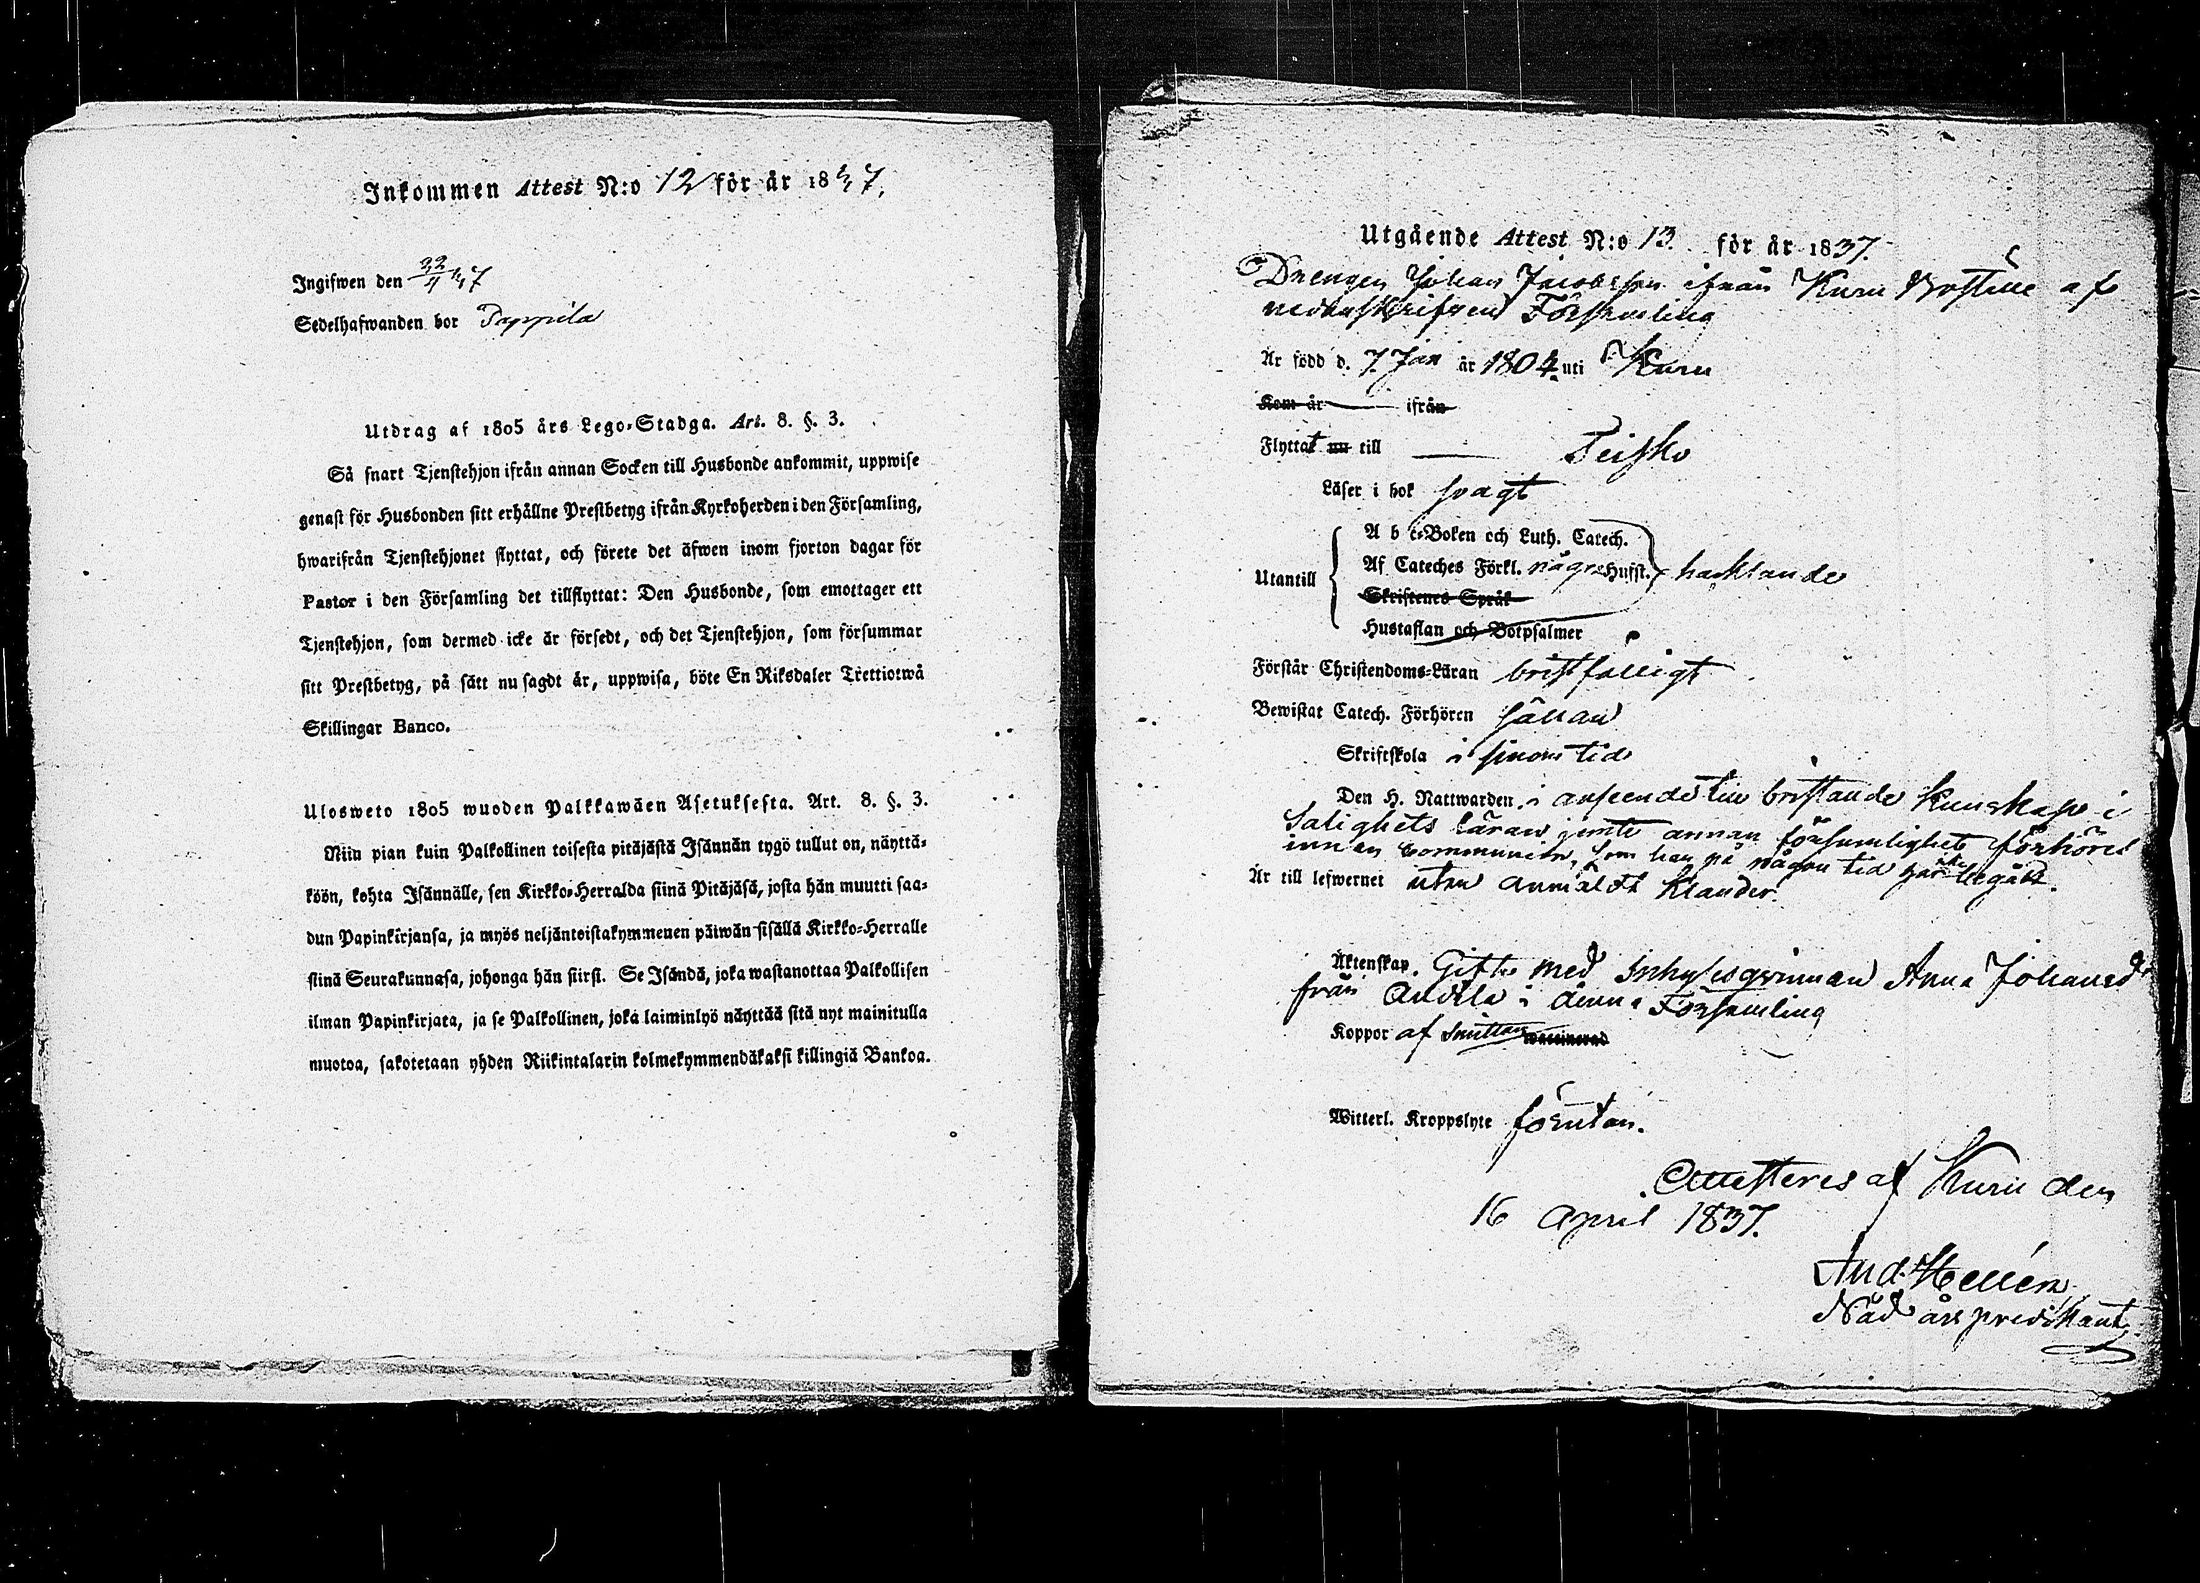 Inkommen Attest N:o 12 för år 1837.
Ingifwen den 22/4 37
Sedelhafwanden bor Pappila
Utdrag af 1805 års Lego-Stadga. Art. 8. §. 3.
Så snart Tjenstehjon ifrån annan Socken till Husbonde ankommit, uppwise
genast för Husbonden sitt erhållne Prestbetyg ifrån Kyrkoherden i den Församling,
hwarifrån Tjenstehjonet flyttat, och förete det äfwen inom fjorton dagar för
Pastor i den Församling det tillflyttat: Den Husbonde, som emottager ett
Tjenstehjon, som dermed icke är försedt, och det Tjenstehjon, som försummar
sitt Prestbetyg, på sätt nu sagdt är, uppwisa, böte En Riksdaler Trettiotwå
Skillingar Banco.
Ulosweto 1805 wuoden Palkkawäen Asetuksesta. Art. 8. §. 3.
Niin pian kuin Palkollinen toisesta pitäjästä Isännän tygö tullut on, näyttä-
köön, kohta Isännälle, sen Kirkko-Herralda siinä Pitäjäsä, josta hän muutti saa-
dun Papinkirjansa, ja myös neljäntoistakymmenen päiwän sisällä Kirkko-Herralle
siinä Seurakunnasa, johonga hän siirsi. Se Isändä, joka wastanottaa Palkollisen
ilman Papinkirjata, ja se Palkollinen, joka laiminlyö näyttää sitä nyt mainitulla
muotoa, sakotetaan yhden Riikintalarin kolmekymmendäkaksi killingiä Bankoa.
Utgående Attest N:o 13. för år 1837.
Drengen Johan Jacobsson ifrån Kuru af
nedanskrifven Församling
Är född d. 7. Jan år 1804 uti Kuru
Kom år ifrån
Flyttat nu till Teisko
Läser i bok svagt
A b c-Boken och Luth. Catech.
Utantill Af Cateches Förkl. några Hufst. hacklande
Skriftenes Språk
Hustaflan och Botpsalmer
Förstår Christendoms-Läran bristfälligt
Bewistat Catech. Förhören sällan
Skriftskola i sinom tid
Den H. Nattwarden. i anseende till bristande Kunskap i
Salighets läran jemte annan försumlighet förhöres
innan Communion, som han på någon tid här icke begått.
Är till lefwernet utan anmäldt Klander.
Äktenskap. Gift med Inhyseqvinnan Anna Johansd:r
från Andila i denna Församling
Koppor af Smittan waccinerad
Witterl. Kroppslyte förutan.
Attesteres af Kuru den
16 April 1837.
And. Hellén
Nåd års predikant.